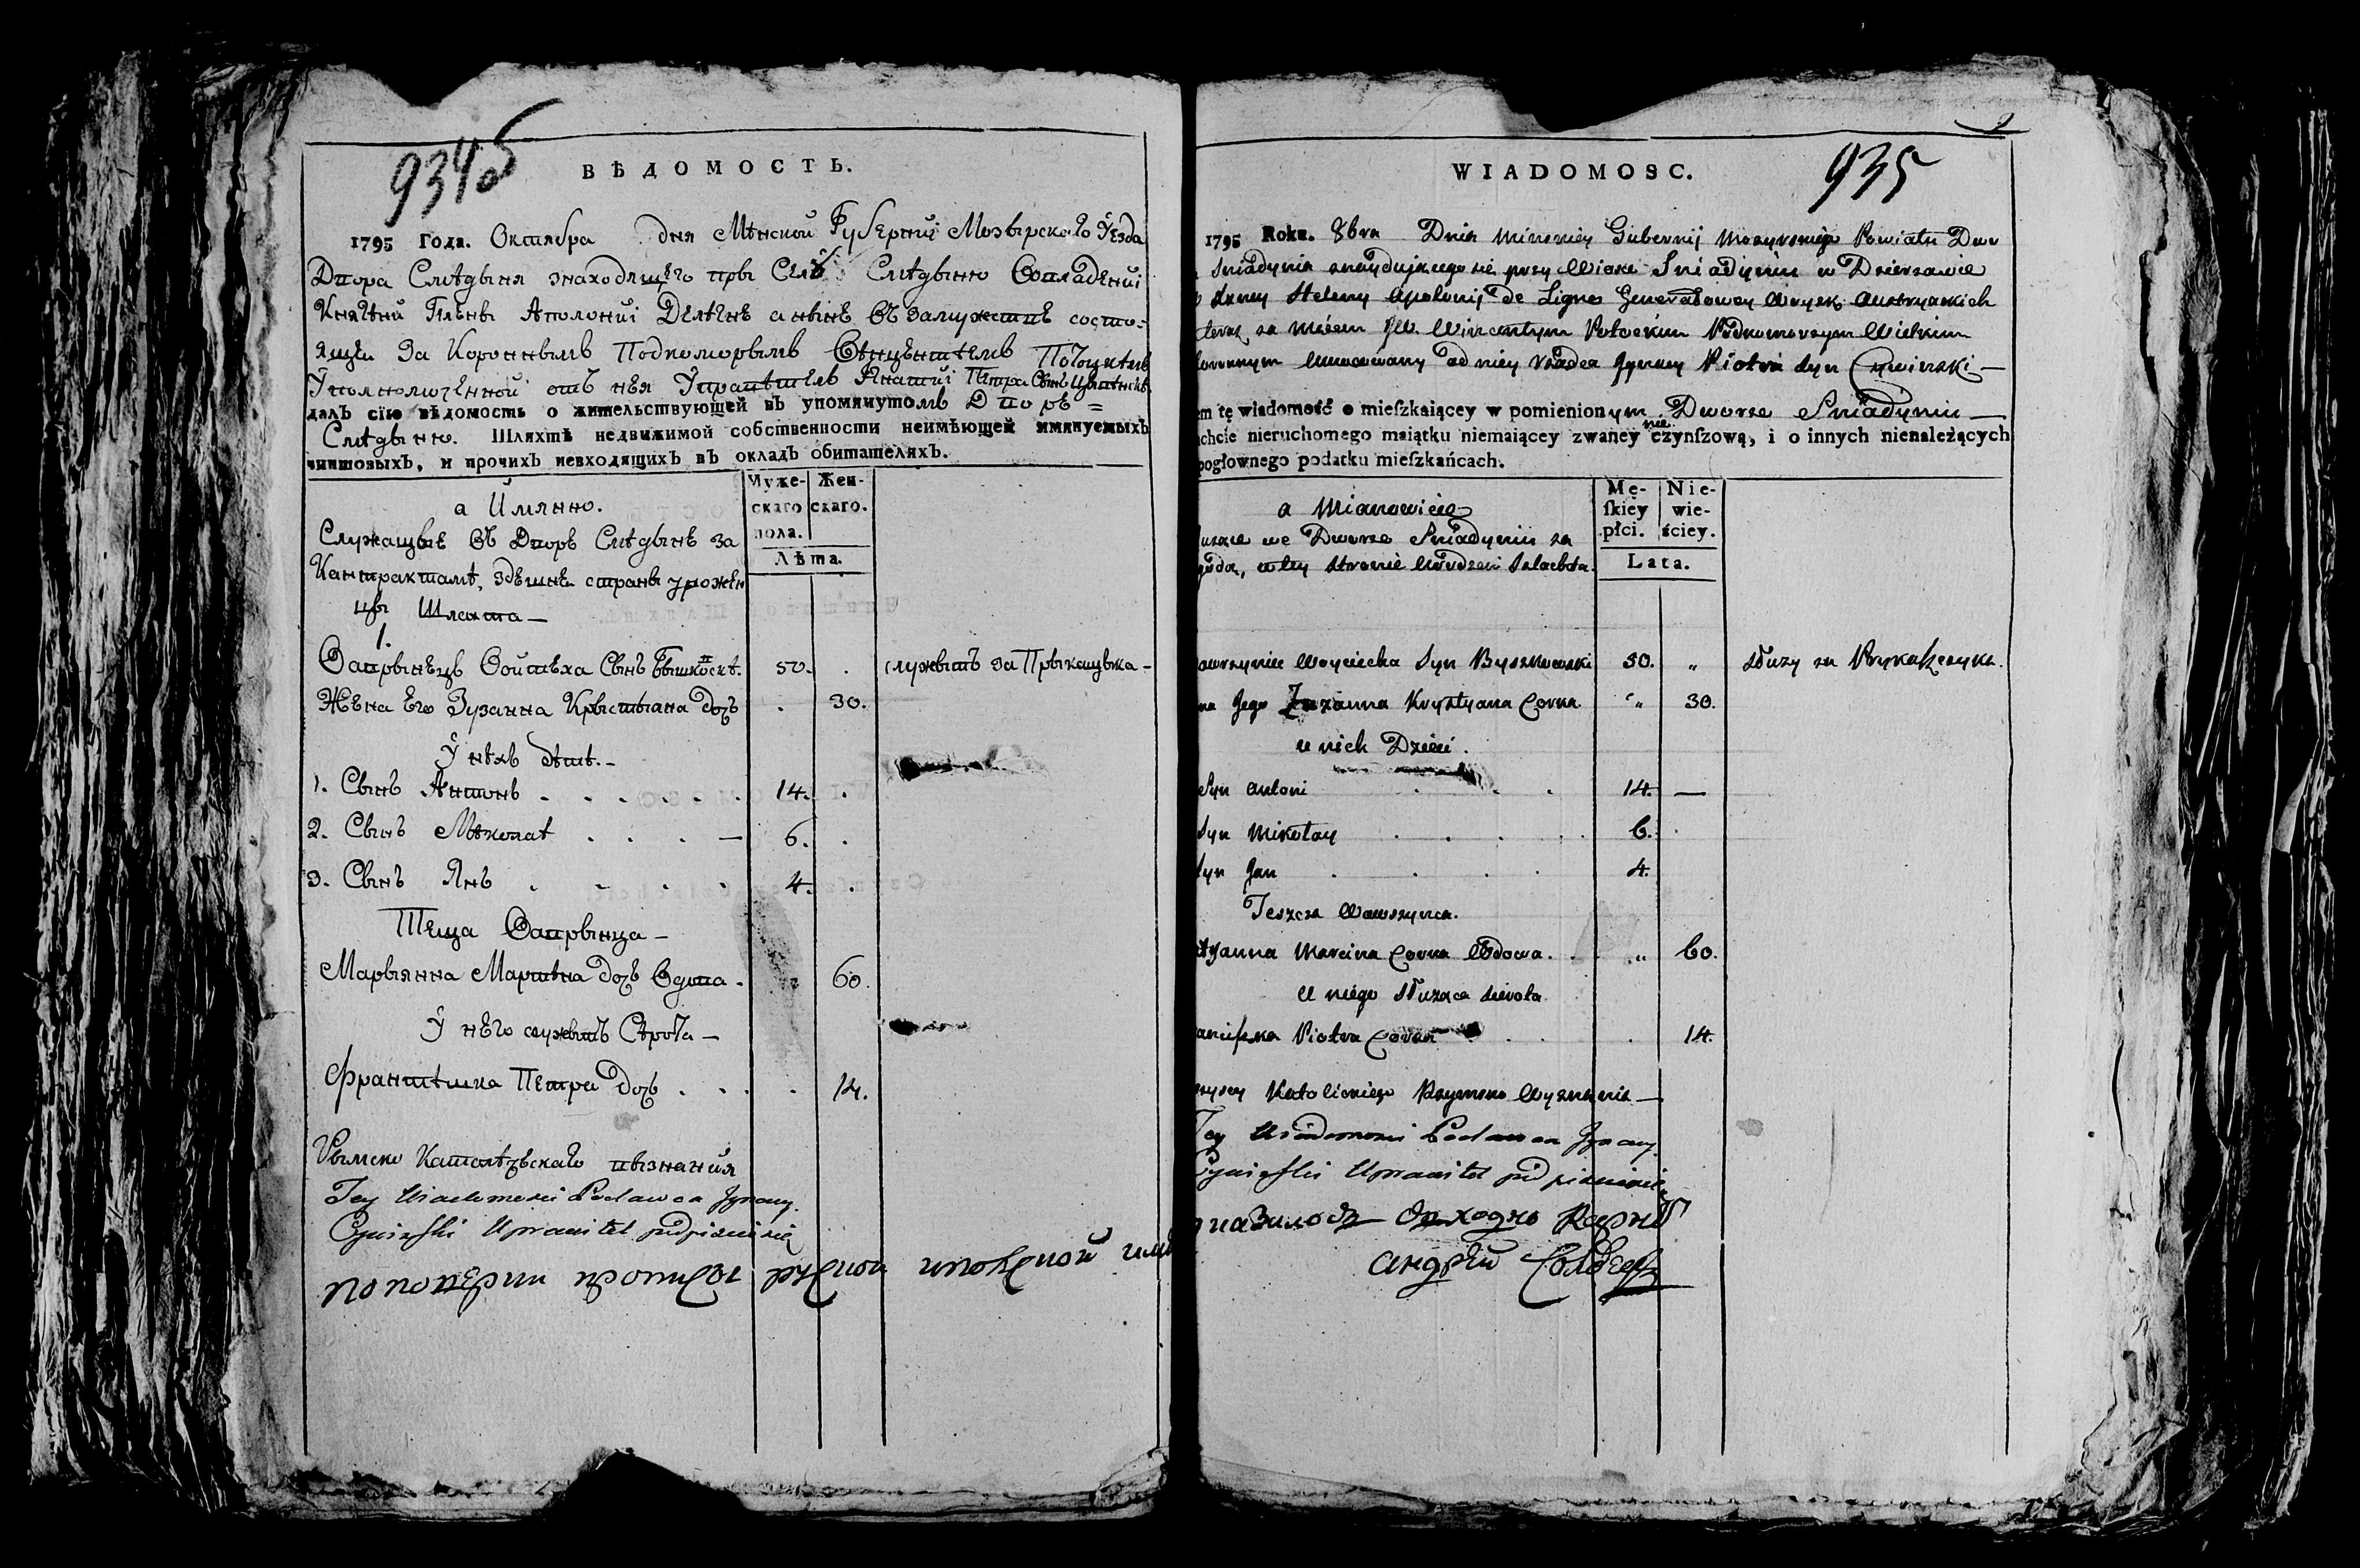 934об
ВѢДОМОСТЬ.
1795 Года. Октября дня Мѣнской Губерніи Мозырскаго Уѣзда
Двора Снѣдыня знаходящего пры Селѣ Снѣдыню Совладеніи
Княгини Гелены Аполоніи Делѣнь а нынѣ въ замужствѣ состо=
ящеи за Короннымъ Подкоморымъ Вѣнцентѣмъ Потоцкѣмъ
Уполномоченной отъ нея Управитель Игнатій Петра Сынъ
далъ сію вѣдомость о жительствующей въ упомянутомъ Дворѣ =
Снѣдыню. Шляхтѣ недвижимой собственности неимѣющей имянуемыхъ
чиншовыхъ, и прочихъ невходящихъ въ окладъ обитателяхъ.
а Имянно.
Муже-скаго пола. Жен-скаго.
Лѣта.
Служащые въ Дворѣ Снѣдынѣ за
Кантрактамѣ, здешне страны урожен
цы Шляхта —
1.
Вавринецъ Войтѣха Сынъ Бышковскѣ. 50. . служытъ за Прыкащыка —
Жена Его Зузанна Крыстыана дочь . 30.
У нѣхъ дѣтѣ. —
1. Сынъ Антонъ . . . . . 14. .
2. Сынъ Мѣколаѣ . . . — 6. .
3. Сынъ Янъ . . . . 4. .
Теща Вавринца —
Марыянна Мартѣна дочь Вдова . 60.
У него служытъ Сѣрота —
Францѣшка Петра дочь . . . 14.
Рымско Католѣцкаго вызнанія
Tey Wiadomosci Podawca Jgnacy
Cywinski Uprawitel podpisuie się
935
WIADOMOSC.
1795 Roku. 8bra Dnia Minskiey Gubernij Mozyrskiego Powiatu Dwo
Sniadynia znaydującego się przy Wiosce Sniadyniu w Dzierzawie
Xzney Heleny Apolonij de Ligne Generałowey Woysk Austryackich
teraz za Mężem JW. Wincentym Potockim Podkomorzym Wielkim
Koronnym Umocowany od niey Rządca Jgnacy Piotra Syn Cywinski —
em tę wiadomość o mieſzkaiącey w pomienionym Dworze Sniadyniu —
achcie nieruchomego maiątku niemaiącey zwaney nie czynſzową, i o innych nienależących
pogłownego podatku mieſzkańcach.
a Mianowicie
Mę-ſkiey płci. Nie-wie-ściey.
Lata.
użące we Dworze Sniadyniu za
goda, w tey stronie Urodzeni Szlachta.
awrzyniec Woyciecha Syn Byszkowski 50. „ słuzy za Prykaszczyka.
na Jego Zuzanna Krystyana Corka „ 30.
u nich Dzieci.
Syn Antoni . . . 14. —
Syn Mikołay . . . . 6. .
Syn Jan . . . . 4.
Teszcza Wawrzynca.
aryanna Marcina Corka Wdowa . . „ 60.
U niego słuząca sierota
anciſzka Piotra Corka . . . 14.
szyscy Katolickiego Rzymsko Wyznania —
Tey Wiadomosci Podawca Jgnacy
Cywinski Uprawitel podpisuie się
андрей